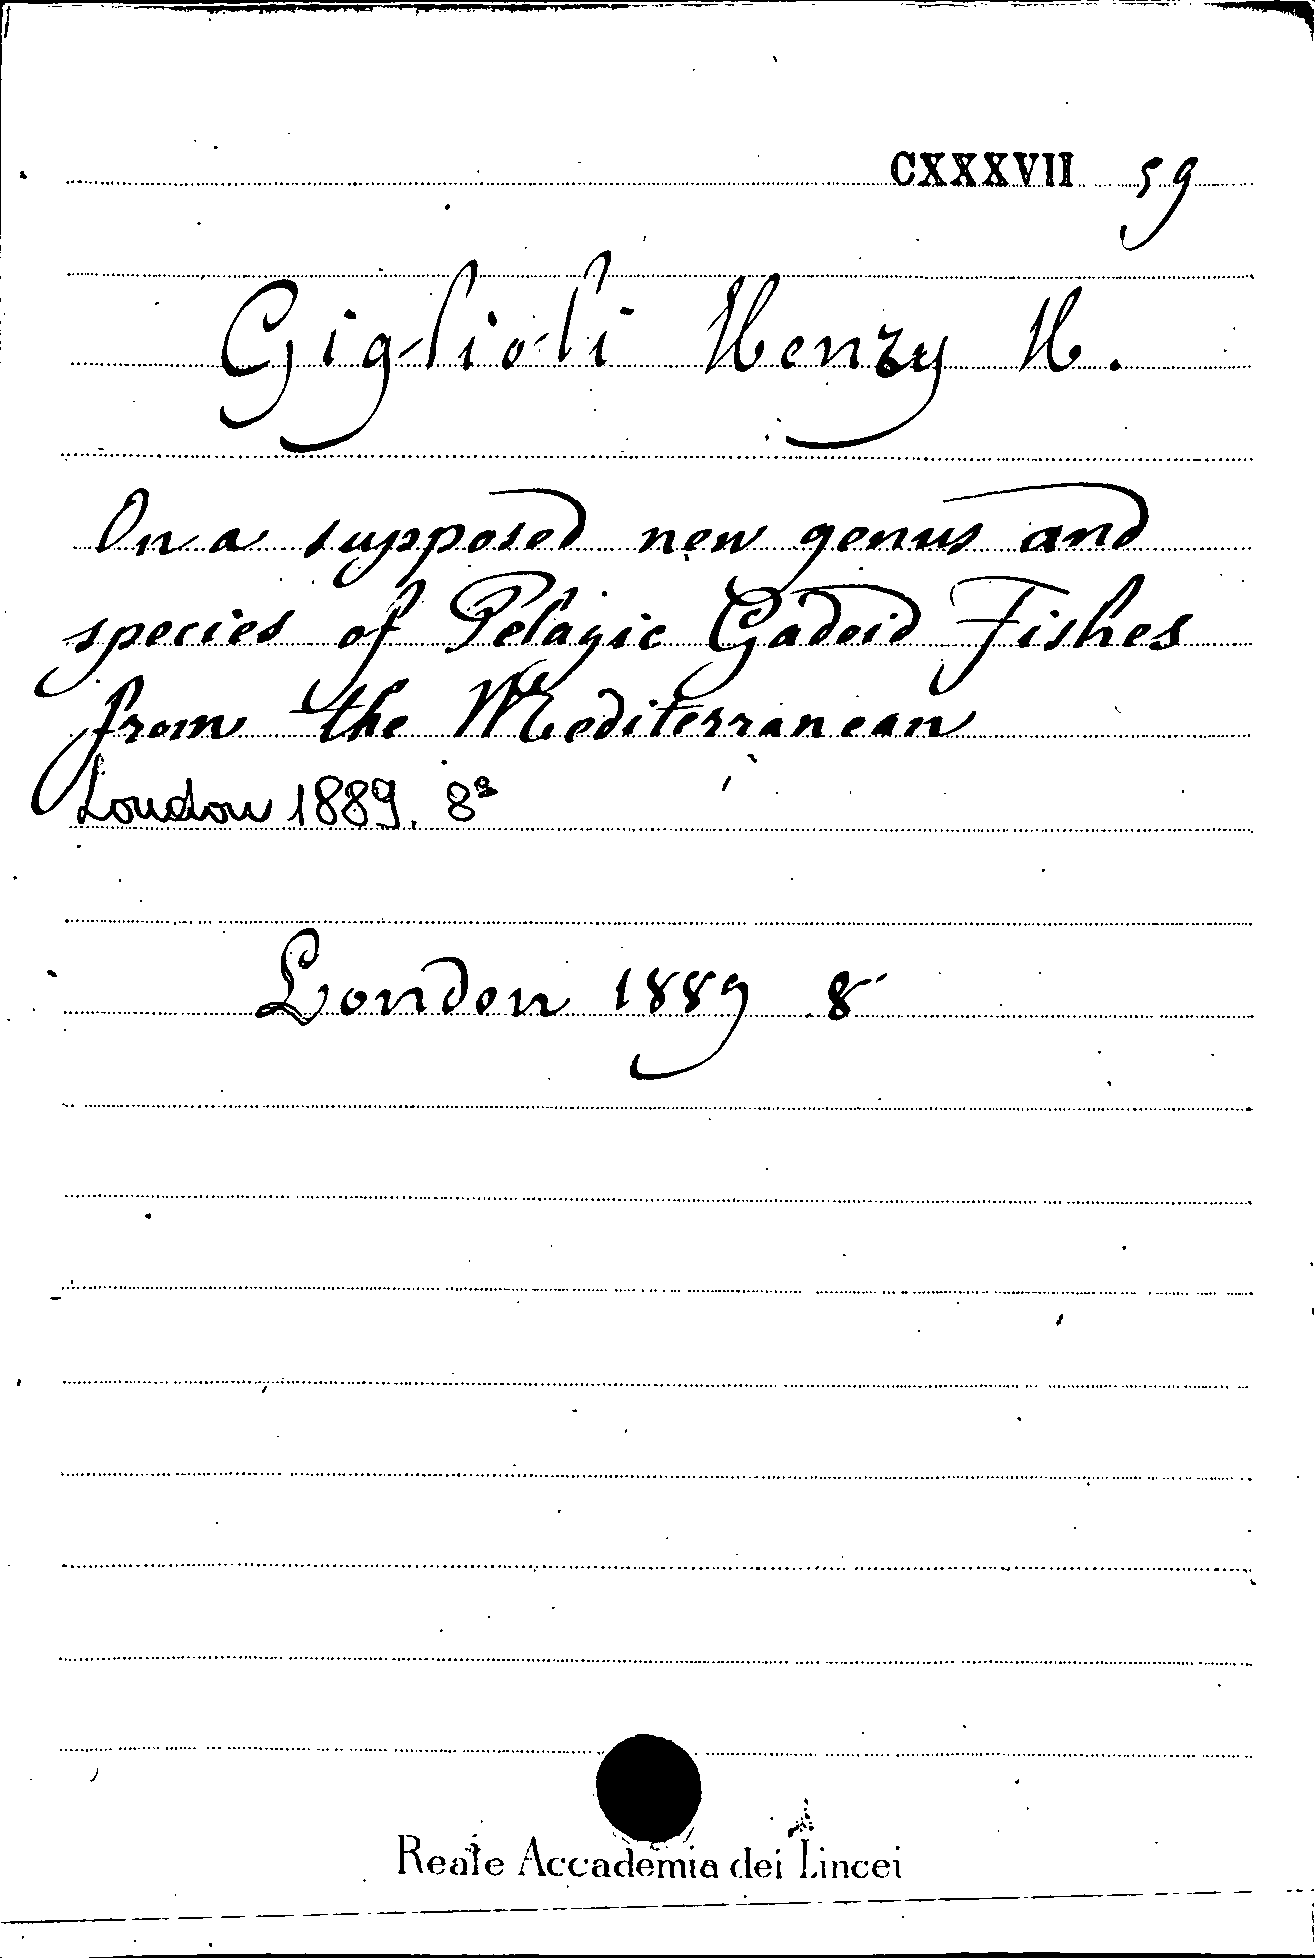 CXXXVII 59
Giglioli Henry H.
On a supposed new genus and
species of Pelagic Gadoid Fishes
from the Mediterranean
London 1889. 8º
London 1889 8º
Reale Accademia dei Lincei